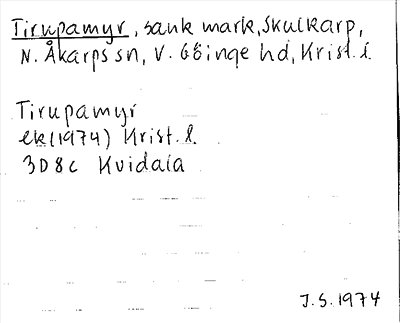 Tirupamyr, sank mark, Skulkarp,
N. Åkarps sn, V. Göinge hd, Krist. l.
Tirupamyr
ek (1974) Krist. l.
3D8c Kvidala
J.S. 1974